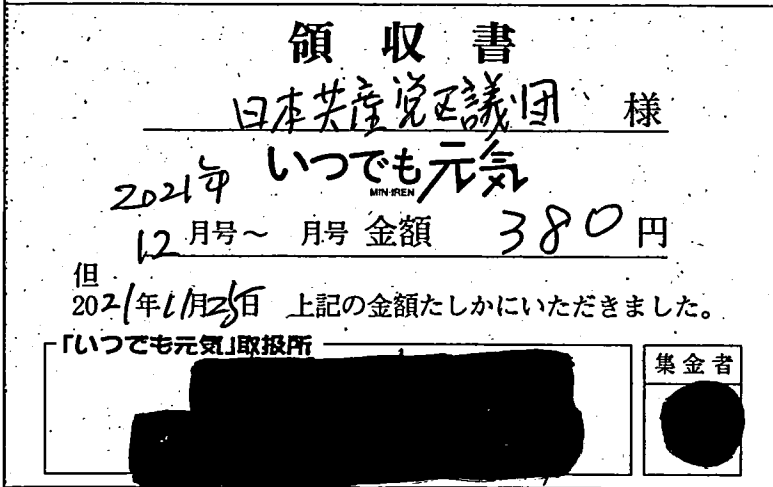 領収書
日本共産党区議団 様
2021年 いつでも元気
MIN-IREN
12月号～ 月号 金額 380円
但
2021年11月25日 上記の金額たしかにいただきました。
「いつでも元気」取扱所
集金者